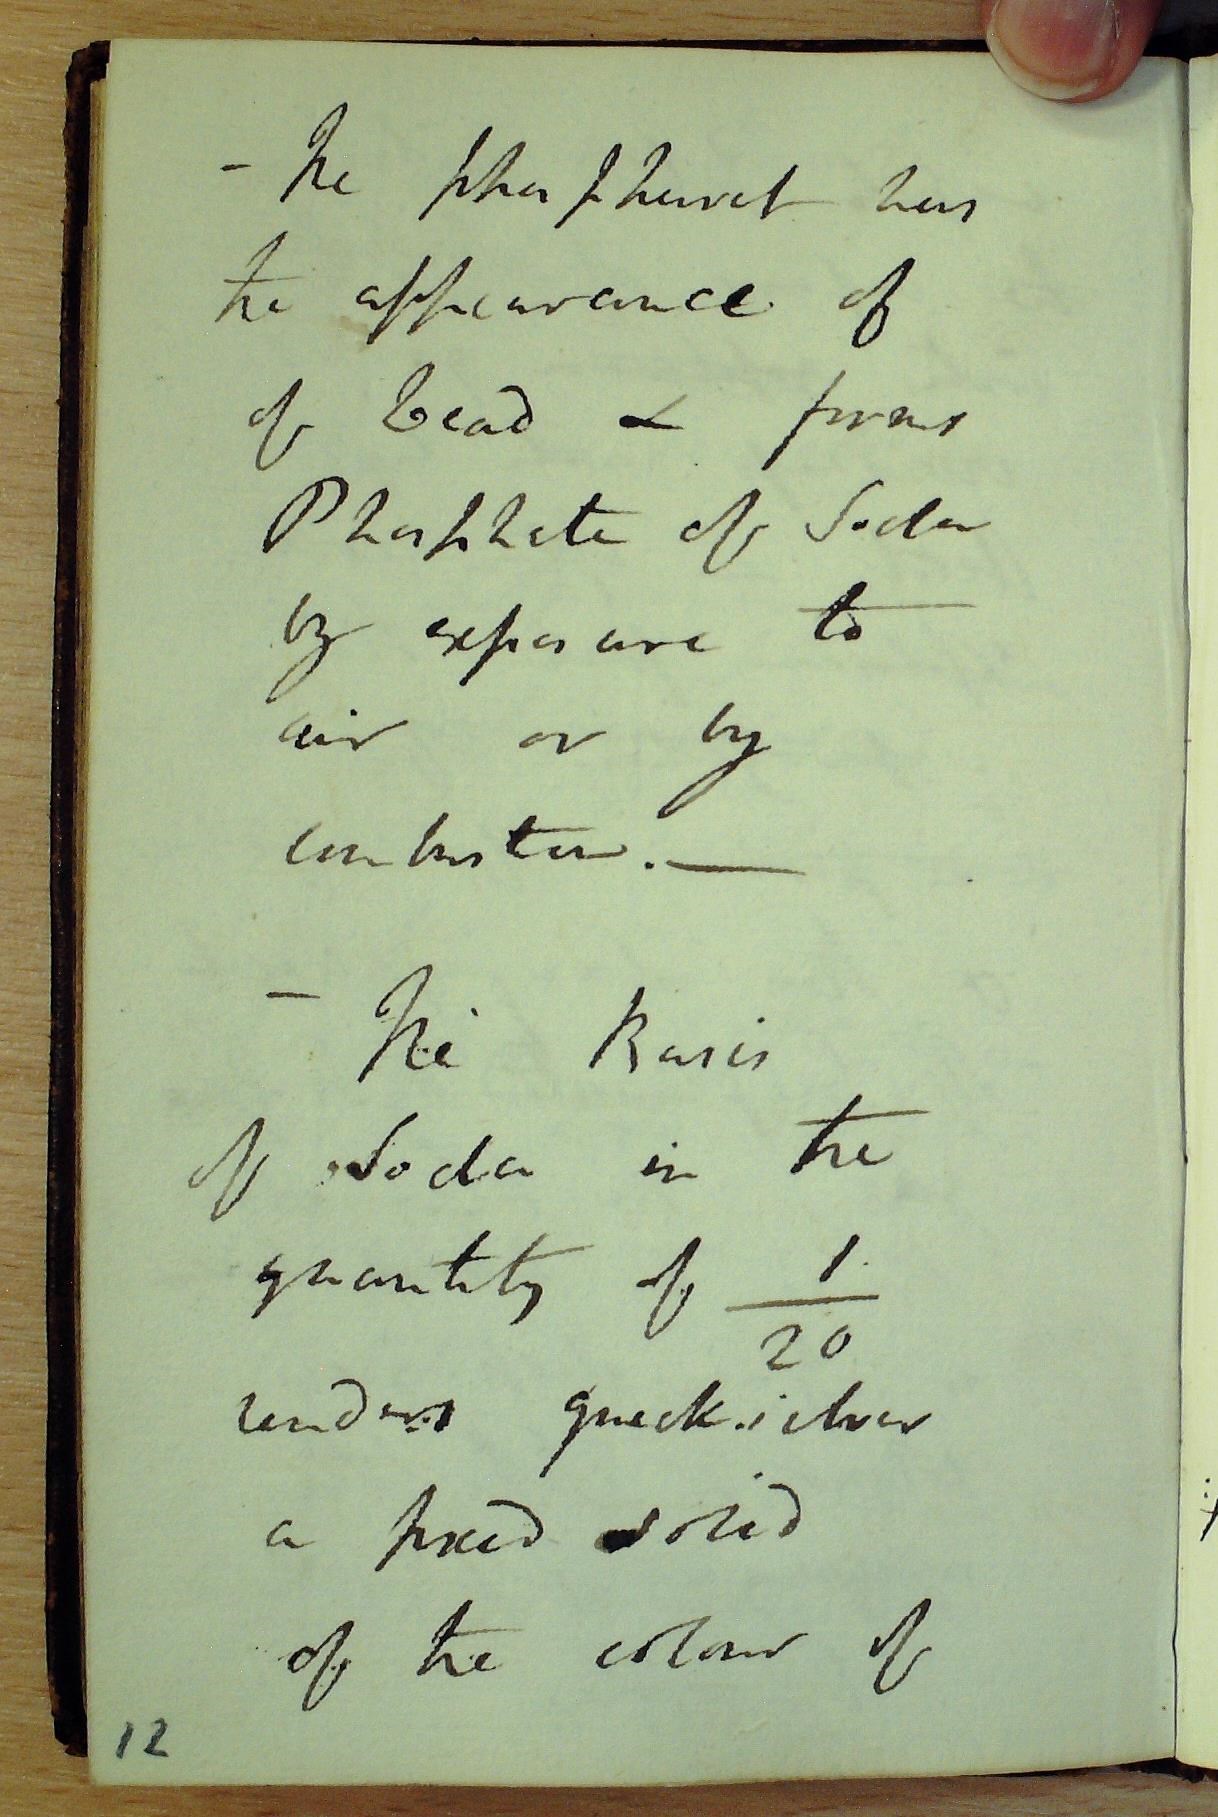 - The phosphuret has
the appearance of
of Lead & forms
Phosphate of Soda
by exposure to
air or by
combustion. —
- The Basis
of Soda in the
quantity of 1/20
renders quicksilver
a fixed solid
of the colour of
12